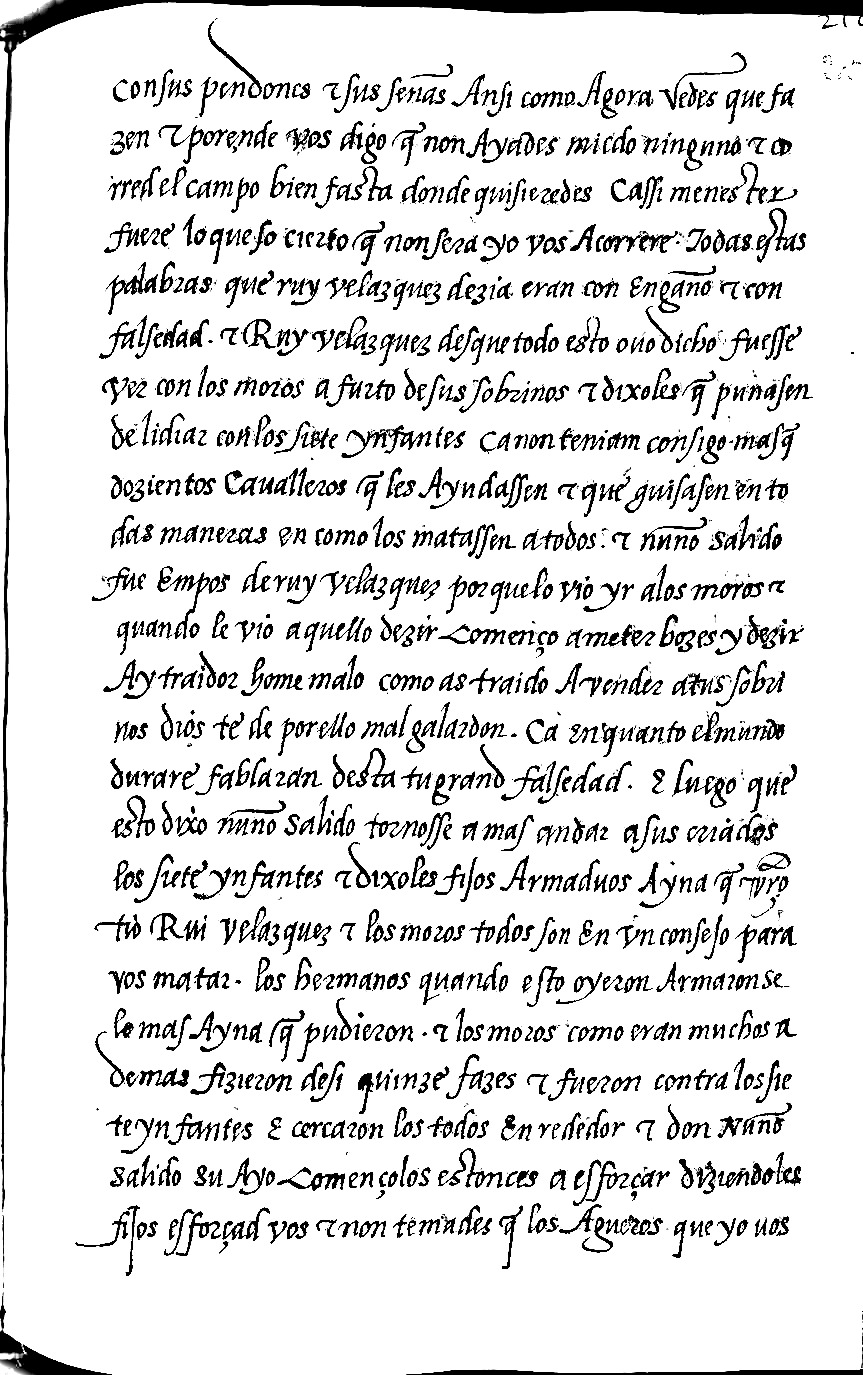 con sus pendones & sus señas Ansi como Agora vedes que fa
zen & porende vos digo q̃ non Ayades miedo ninguno & co
rred el campo bien fasta donde quisieredes Ca ssi menester
fuere lo que so cierto q̃ non sera yo vos Acorrere. Todas estas
palabras que ruy velazquez dezia eran con Engaño & con
falsedad. & Ruy velazquez desque todo esto ouo dicho fuesse
ver con los moros a furto de sus sobrinos & dixoles q̃ punasen
de lidiar con los siete ynfantes Ca non teniam consigo mas q̃
dozientos Caualleros q̃ les Ayudassen & que guisasen en to
das maneras en como los matassen a todos. & nuño salido
fue Empos de ruy velazquez porque lo vio yr a los moros &
quando le vio aquello dezir començo a meter bozes y dezir
Ay traidor home malo como as traido A vender a tus sobri
nos dios te de por ello mal galardon. Ca en quanto el mundo
durare fablaran desta tu grand falsedad. E luego que
esto dixo nuño salido tornosse a mas andar a sus criados
los siete ynfantes & dixoles fijos Armaduos Ayna q̃ vr̃o
tio Rui velazquez & los moros todos son En vn consejo para
vos matar. los hermanos quando esto oyeron Armaronse
lo mas Ayna q̃ pudieron. & los moros como eran muchos a
demas fizieron desi quinze fazes & fueron contra los sie
te ynfantes E cercaron los todos En rededor & don Nuño
salido su Ayo començolos estonces a esforçar diziendoles
fijos esforçad vos & non temades q̃ los Agueros que yo uos